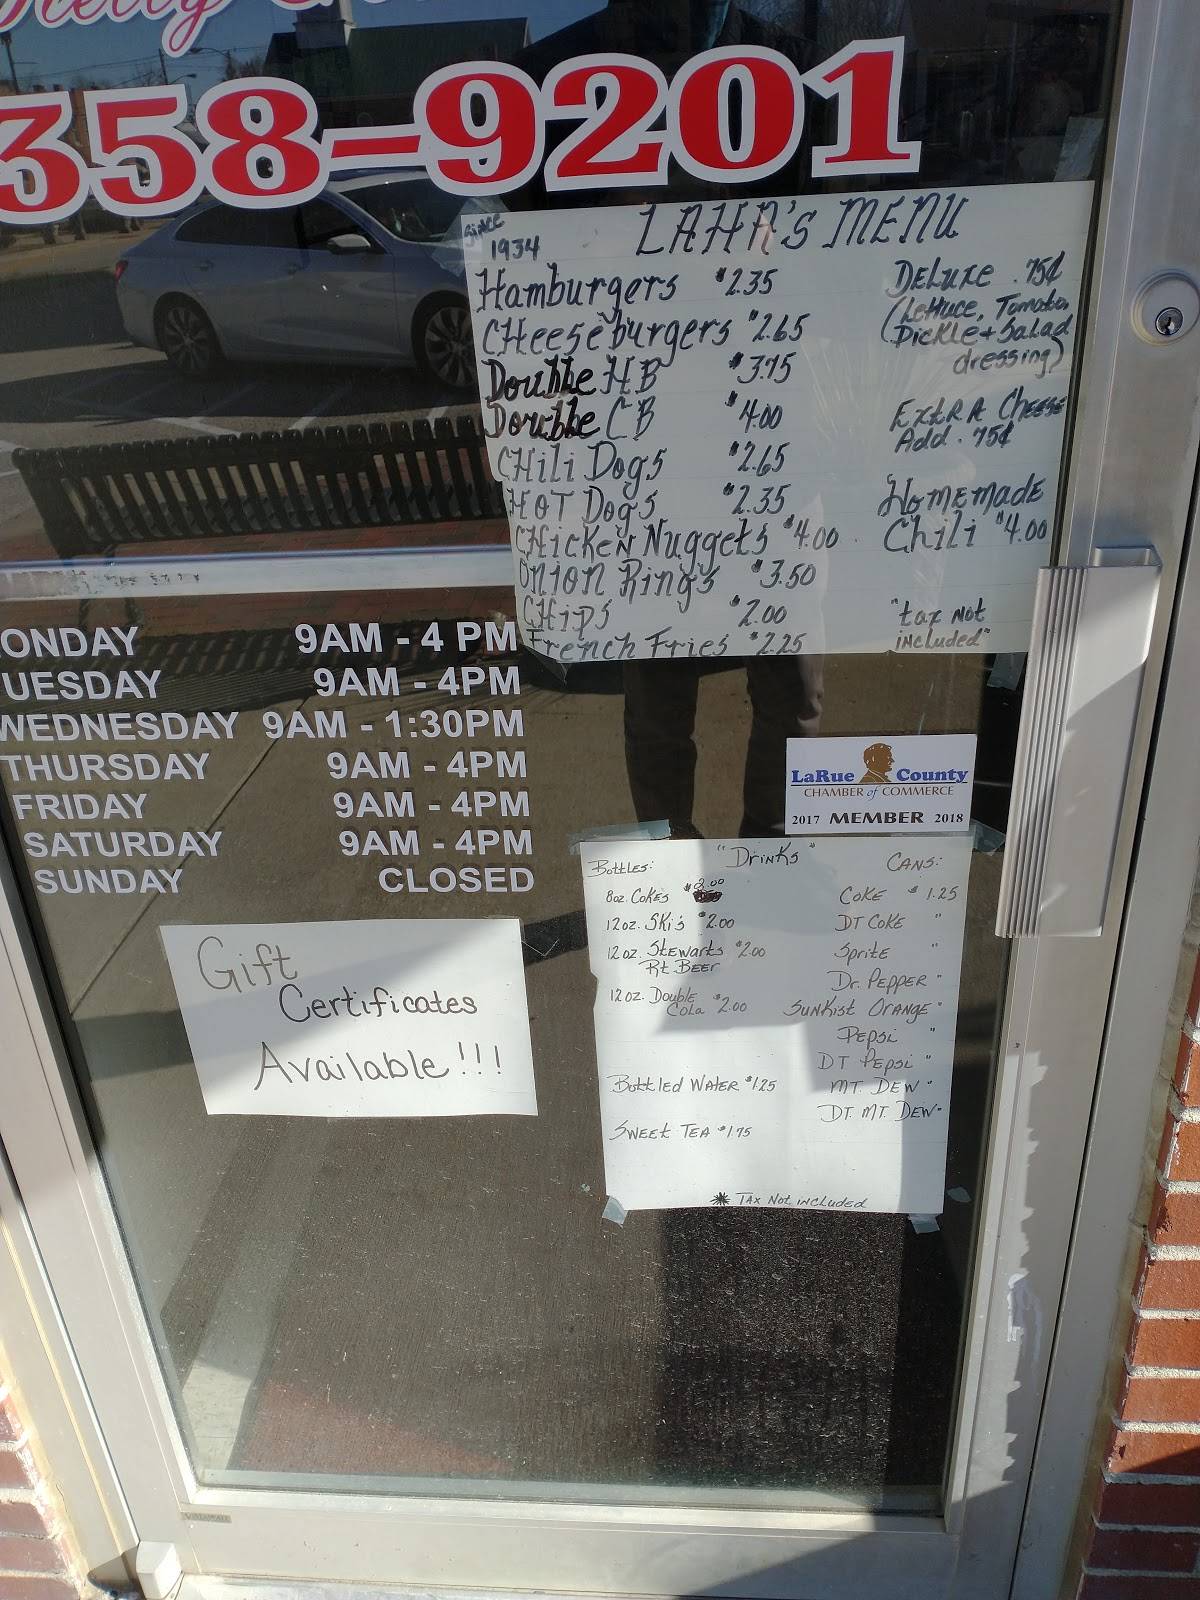 358-9201
Since
1934
LAHA's MENU
Hamburgers $2.35
Cheeseburgers $2.65
Double HB $3.75
Double CB $4.00
Chili Dogs $2.65
Hot Dogs $2.35
Chicken Nuggets $4.00
Onion Rings $3.50
Chips $2.00
French Fries $2.25
Deluxe .75¢
(Lettuce, Tomato,
Pickle + Salad
dressing)
Extra Cheese
Add .75¢
Homemade
Chili $4.00
"tax not
included"
ONDAY 9AM - 4 PM
UESDAY 9AM - 4PM
WEDNESDAY 9AM - 1:30PM
THURSDAY 9AM - 4PM
FRIDAY 9AM - 4PM
SATURDAY 9AM - 4PM
SUNDAY CLOSED
LaRue County
CHAMBER of COMMERCE
2017 MEMBER 2018
"Drinks"
Bottles:
8oz. Cokes $2.00
12oz. Ski's $2.00
12oz. Stewarts $2.00
Rt Beer
12oz. Double
Cola $2.00
Bottled Water $1.25
Sweet Tea $1.75
Cans:
Coke $1.25
DT Coke "
Sprite "
Dr. Pepper "
Sunkist Orange "
Pepsi "
DT Pepsi "
MT. Dew "
DT. MT. Dew "
* Tax Not included
Gift
Certificates
Available!!!